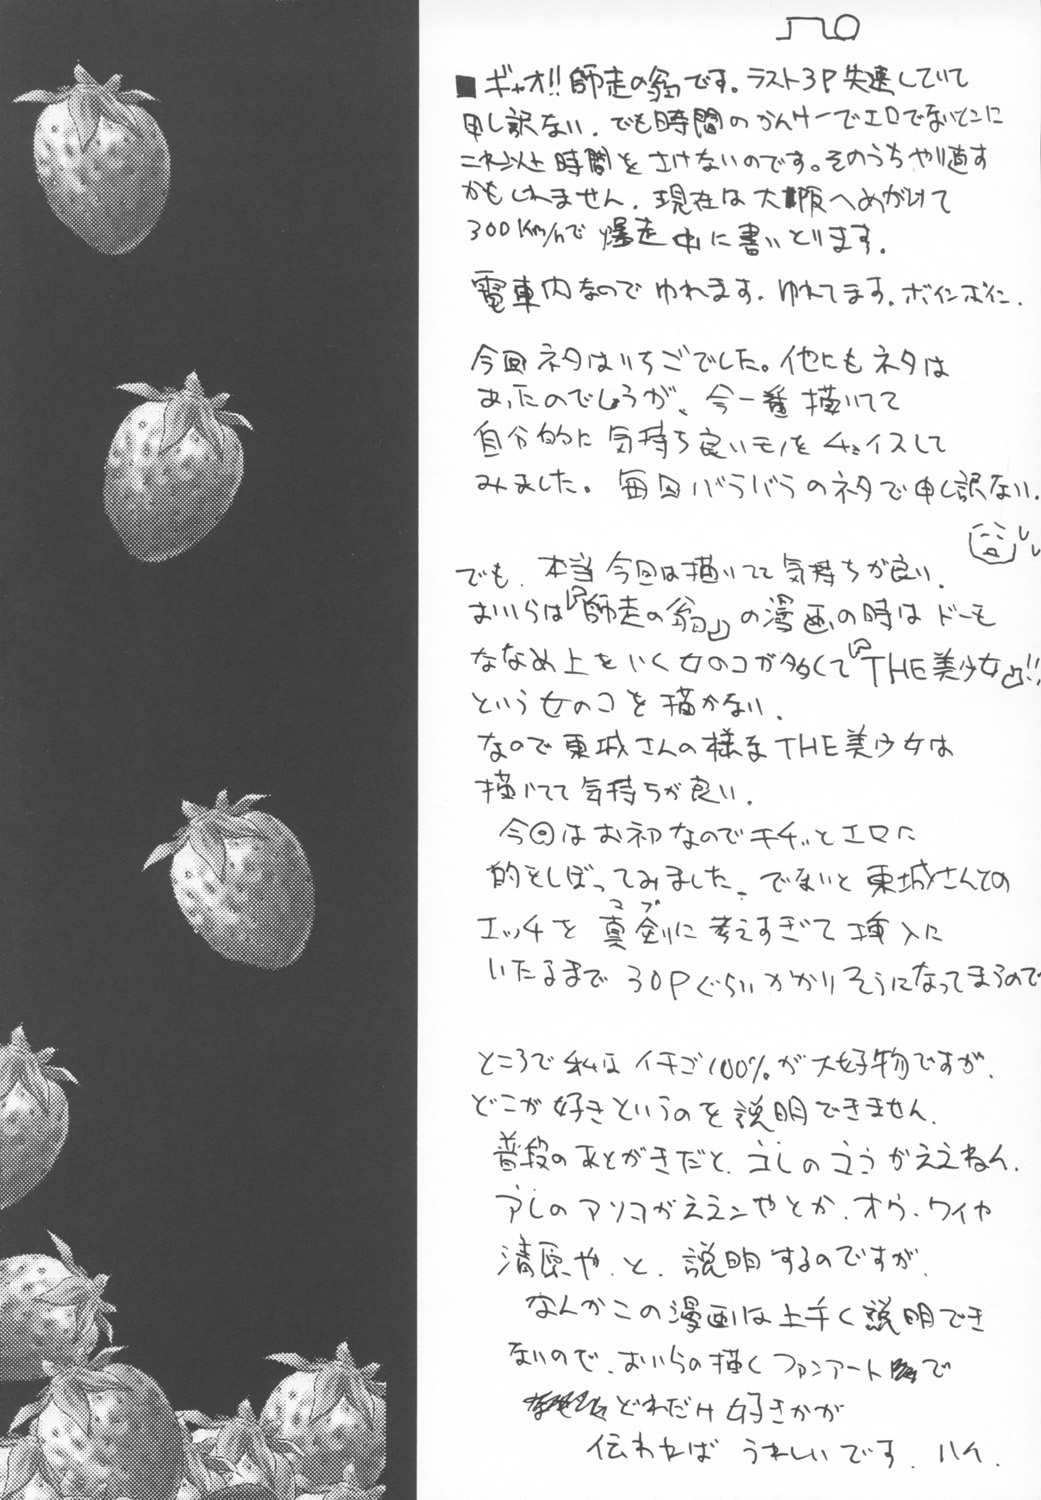 ■ギャオ!!師走の翁です。ラスト3P失速していて
申し訳ない。でも時間のかんけーでエロでないとこに
これ以上時間をさけないのです。そのうちやり直す
かもしれません。現在は大阪へめがけて
300Km/hで爆走中に書いとります。
電車内なのでゆれます。ゆれてます。ボインボイン.
今回ネタはいちごでした。他にもネタは
あったのでしょうが、今一番描いてて
自分的に気持ち良いモノをチョイスして
みました。毎回バラバラのネタで申し訳ない.
でも、本当今回は描いてて気持ちが良い.
おいらは『師走の翁』の漫画の時はドーモ
ななめ上をいく女のコが多くて『THE美少女』!!
という女のコを描かない.
なので東城さんの様なTHE美少女は
描いてて気持ちが良い.
今回はお初なのでキチッとエロに
的をしぼってみました。でないと東城さんでの
エッチを真剣に考えすぎて挿入に
マブ
いたるまで30Pぐらいかかりそうになってまうので
ところで私はイチゴ100%が大好物ですが、
どこが好きというのを説明できません.
普段のあとがきだと、コレのココがええねん.
アレのアソコがええンやとか、オウ、ワイや
清原や、と、説明するのですが、
なんかこの漫画は上手く説明でき
ないので、おいらの描くファンアートで
どれだけ好きかが
伝われば うれしいです. ハイ.